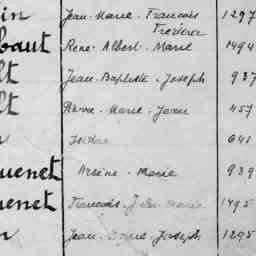 in Jean - Marie - Francois 1297
Frederic
baut Rene - Albert - Marie 1494
lt Jean - Baptiste - Joseph 937
lt Pierre - Marie - Jean 457
Isidore 641
uenet Arsène - Marie 939
uenet Francois - Marie 1495
Jean - Joseph 1295